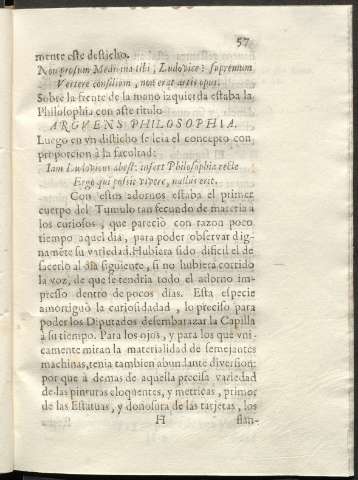 57
mente este desticho.
Non prosum Medicina tibi, Ludovice: supremum
Vertere consilium, non erat artis opus.
Sobre la frente de la mano izquierda estaba la
Philosophia con este titulo
ARGVENS PHILOSOPHIA.
Luego en vn distichо se leia el concepto con
proporcion à la facultad:
Iam Ludovicus abest: infert Philosophia recte
Ergo qui possit vivere, nullus erit.
Con estos adornos estaba el primer
cuerpo del Tumulo tan fecundo de materia à
los curiosos, que pareciò con razon poco
tiempo aquel dia, para poder observar dig-
namēte su variedad. Hubiera sido dificil el de
facerlo al dia siguiente, si no hubiera corrido
la voz, de que se tendria todo el adorno im-
presso dentro de pocos dias. Esta especie
amortiguò la curiosidadad, lo preciso para
poder los Diputados desembarazar la Capilla
à su tiempo. Para los ojos, y para los que vni-
camente miran la materialidad de semejantes
machinas, tenia tambien abundante diversion:
por que à demas de aquella precisa variedad
de las pinturas eloquentes, y metricas, primor
de las Estatuas, y donosura de las tarjetas, los
H flan-